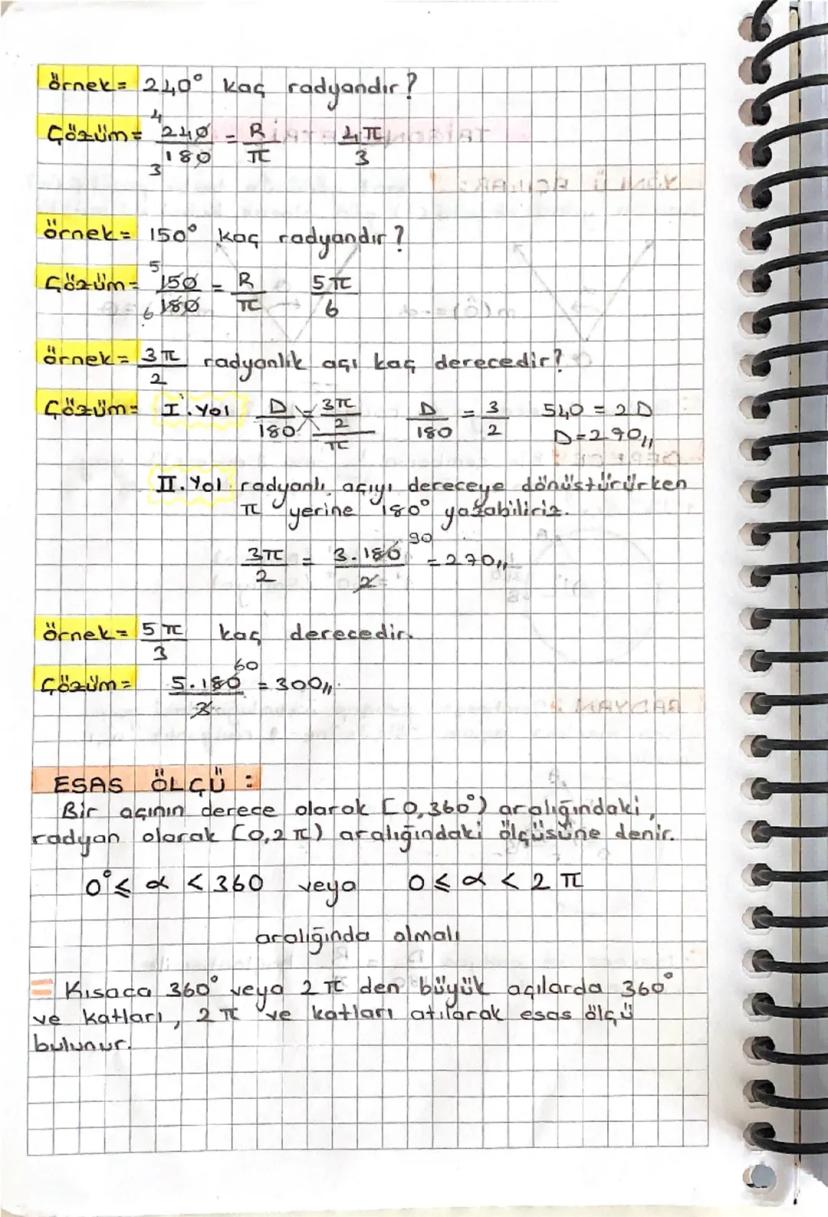 örnek = 240° kaç radyandır?
Çözüm = 4 240/180 3 = R/π 4π/3
örnek = 150° kaç radyandır?
Çözüm = 5 150/180 6 = R/π 5π/6
örnek = 3π/2 radyanlık açı kaç derecedir?
Çözüm = I. Yol D/180 = (3π/2)/π D/180 = 3/2 540 = 2D
D=270,,
II. Yol. radyanlı açıyı dereceye dönüştürürken
π yerine 180° yazabiliriz.
3π/2 = 3.180/2 90 = 270,,
örnek = 5π/3 kaç derecedir.
Çözüm = 5.180/3 60 = 300,,.
ESAS ÖLÇÜ :
Bir açının derece olarak [0,360°) aralığındaki,
radyan olarak [0,2π) aralığındaki ölçüsüne denir.
0° ≤ α < 360 veya 0 ≤ α < 2π
aralığında olmalı
= Kısaca 360° veya 2π den büyük açılarda 360°
ve katları, 2π ve katları atılarak esas ölçü
bulunur.